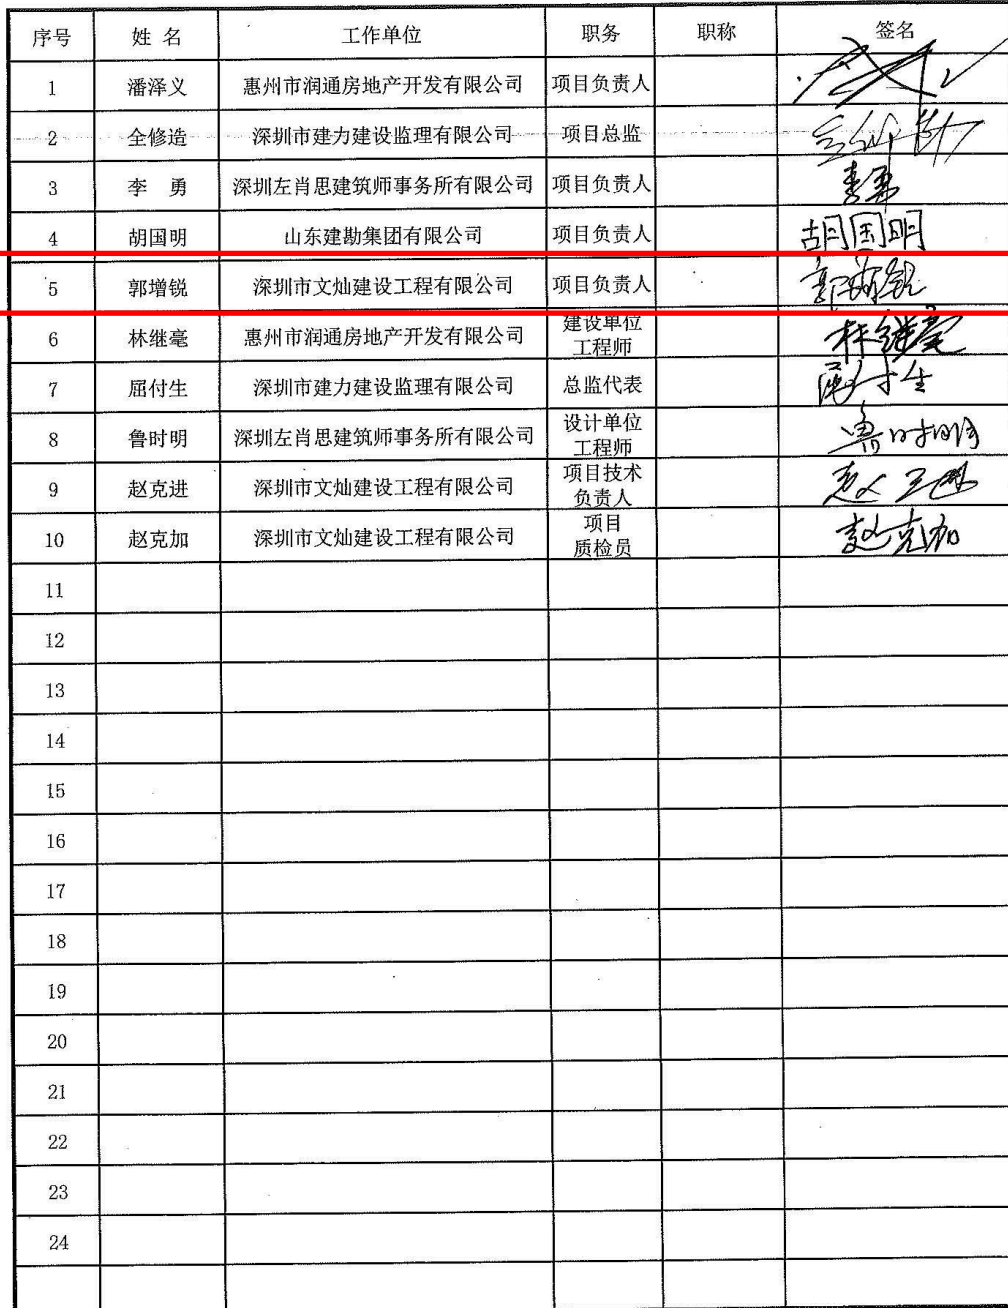 序号 姓 名 工作单位 职务 职称 签名
1 潘泽义 惠州市润通房地产开发有限公司 项目负责人
2 全修造 深圳市建力建设监理有限公司 项目总监
3 李 勇 深圳左肖思建筑师事务所有限公司 项目负责人 李勇
4 胡国明 山东建勘集团有限公司 项目负责人 胡国明
5 郭增锐 深圳市文灿建设工程有限公司 项目负责人 郭增锐
6 林继毫 惠州市润通房地产开发有限公司 建设单位 林继毫
工程师
7 屈付生 深圳市建力建设监理有限公司 总监代表 屈付生
8 鲁时明 深圳左肖思建筑师事务所有限公司 设计单位 鲁时明
工程师
9 赵克进 深圳市文灿建设工程有限公司 项目技术
负责人
10 赵克加 深圳市文灿建设工程有限公司 项目 赵克加
质检员
11
12
13
14
15
16
17
18
19
20
21
22
23
24